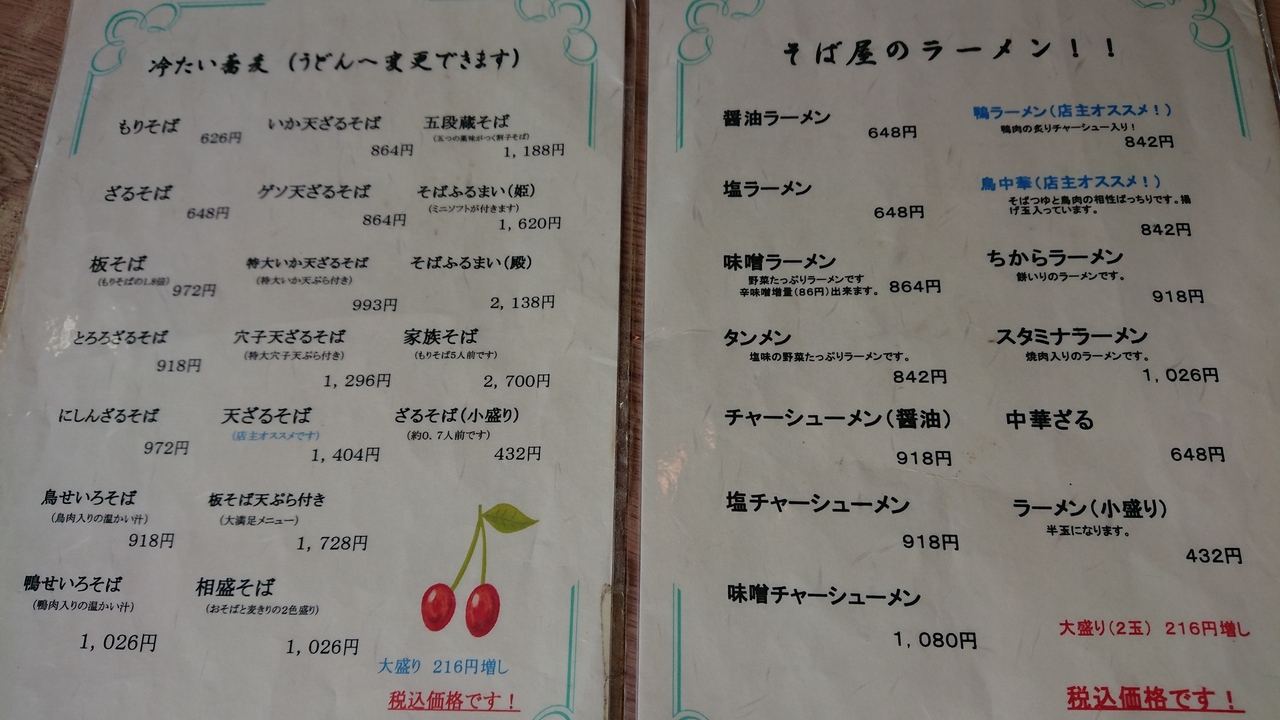 冷たい蕎麦（うどんへ変更できます）
もりそば
626円
ざるそば
648円
板そば
（もりそばの1.8倍）
972円
とろろざるそば
918円
にしんざるそば
972円
鳥せいろそば
（鳥肉入りの温かい汁）
918円
鴨せいろそば
（鴨肉入りの温かい汁）
1,026円
いか天ざるそば
864円
ゲソ天ざるそば
864円
特大いか天ざるそば
（特大いか天ぷら付き）
993円
穴子天ざるそば
（特大穴子天ぷら付き）
1,296円
天ざるそば
（店主オススメです）
1,404円
板そば天ぷら付き
（大満足メニュー）
1,728円
相盛そば
（おそばと麦きりの2色盛り）
1,026円
五段蔵そば
（五つの薬味がつく割子そば）
1,188円
そばふるまい（姫）
（ミニソフトが付きます）
1,620円
そばふるまい（殿）
2,138円
家族そば
（もりそば5人前です）
2,700円
ざるそば（小盛り）
（約0.7人前です）
432円
大盛り 216円増し
税込価格です！
そば屋のラーメン！！
醤油ラーメン
648円
塩ラーメン
648円
味噌ラーメン
野菜たっぷりラーメンです
辛味噌増量（86円）出来ます。
864円
タンメン
塩味の野菜たっぷりラーメンです。
842円
チャーシューメン（醤油）
918円
塩チャーシューメン
918円
味噌チャーシューメン
1,080円
鴨ラーメン（店主オススメ！）
鴨肉の炙りチャーシュー入り！
842円
鳥中華（店主オススメ！）
そばつゆと鳥肉の相性ばっちりです。揚
げ玉入っています。
842円
ちからラーメン
餅いりのラーメンです。
918円
スタミナラーメン
焼肉入りのラーメンです。
1,026円
中華ざる
648円
ラーメン（小盛り）
半玉になります。
432円
大盛り（2玉） 216円増し
税込価格です！